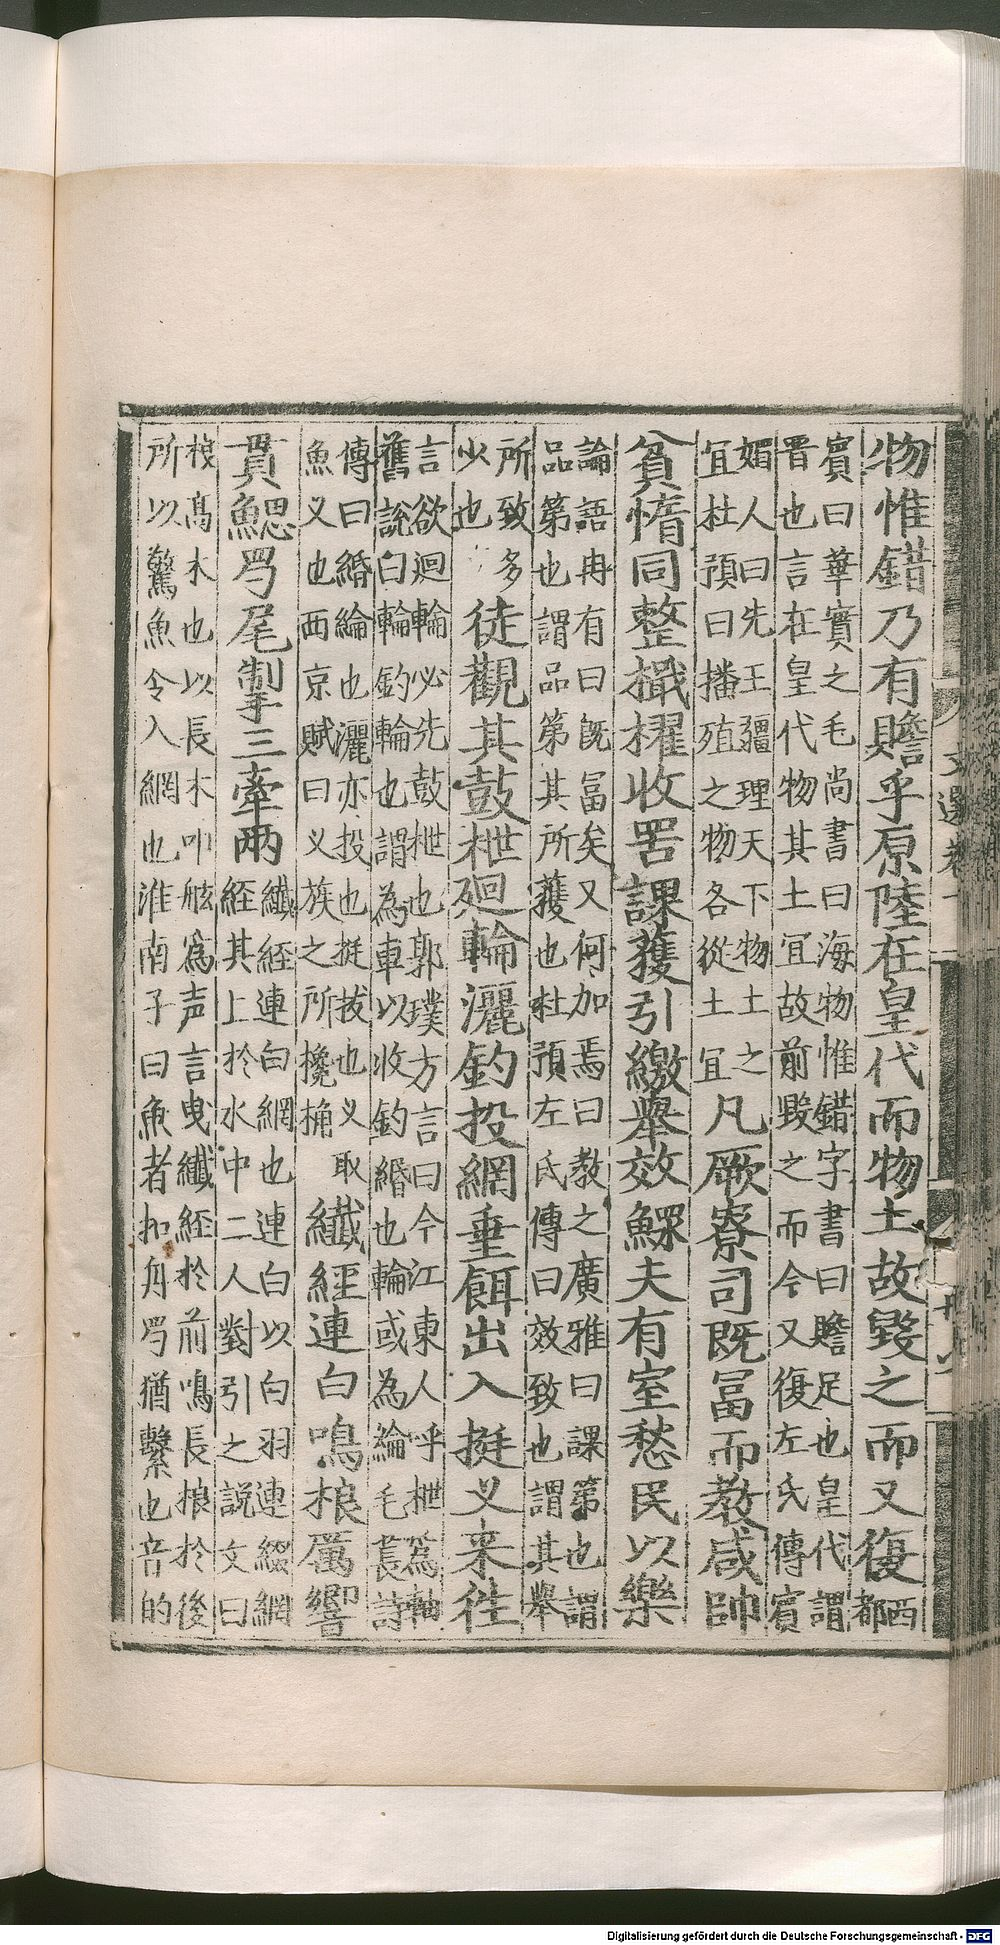 物惟錯乃有贍乎原陸在皇代而物土故毀之而又復西都
賓曰華實之毛尚書曰海物惟錯字書曰贍足也皇代謂
晋也言在皇代物其土宜故前毀之而今又復左氏傳賓
媚人曰先王疆理天下物土之
宜杜預曰播殖之物各從土宜凡厥寮司既冨而教咸帥
貧惰同整檝櫂收罟課獲引繳舉效鰥夫有室愁民以樂
論語冉有曰既冨矣又何加焉曰教之廣雅曰課第也謂
品第也謂品第其所獲也杜預左氏傳曰效致也謂其舉
所致多
少也徒觀其鼓枻廻輪灑釣投網垂餌出入挺义来徃
言欲迴輪必先鼓枻也郭璞方言曰今江東人呼枻爲軸
舊說曰輪釣輪也謂為車以收釣緡也輪或為綸毛萇詩
傳曰緡綸也灑亦投也挺拔也义取
魚义也西京賦曰义簇之所攙捔纖經連白鳴桹厲響
貫鰓𤓰尾掣三牽兩
纖經連白網也連白以白羽連綴網
經其上於水中二人對引之說文曰
桹髙木也以長木叩舷爲声言曳纖經於前鳴長桹於後
所以驚魚令入網也淮南子曰魚者扣舟𤓰猶繫也音的
Digitalisierung gefördert durch die Deutsche Forschungsgemeinschaft - DFG